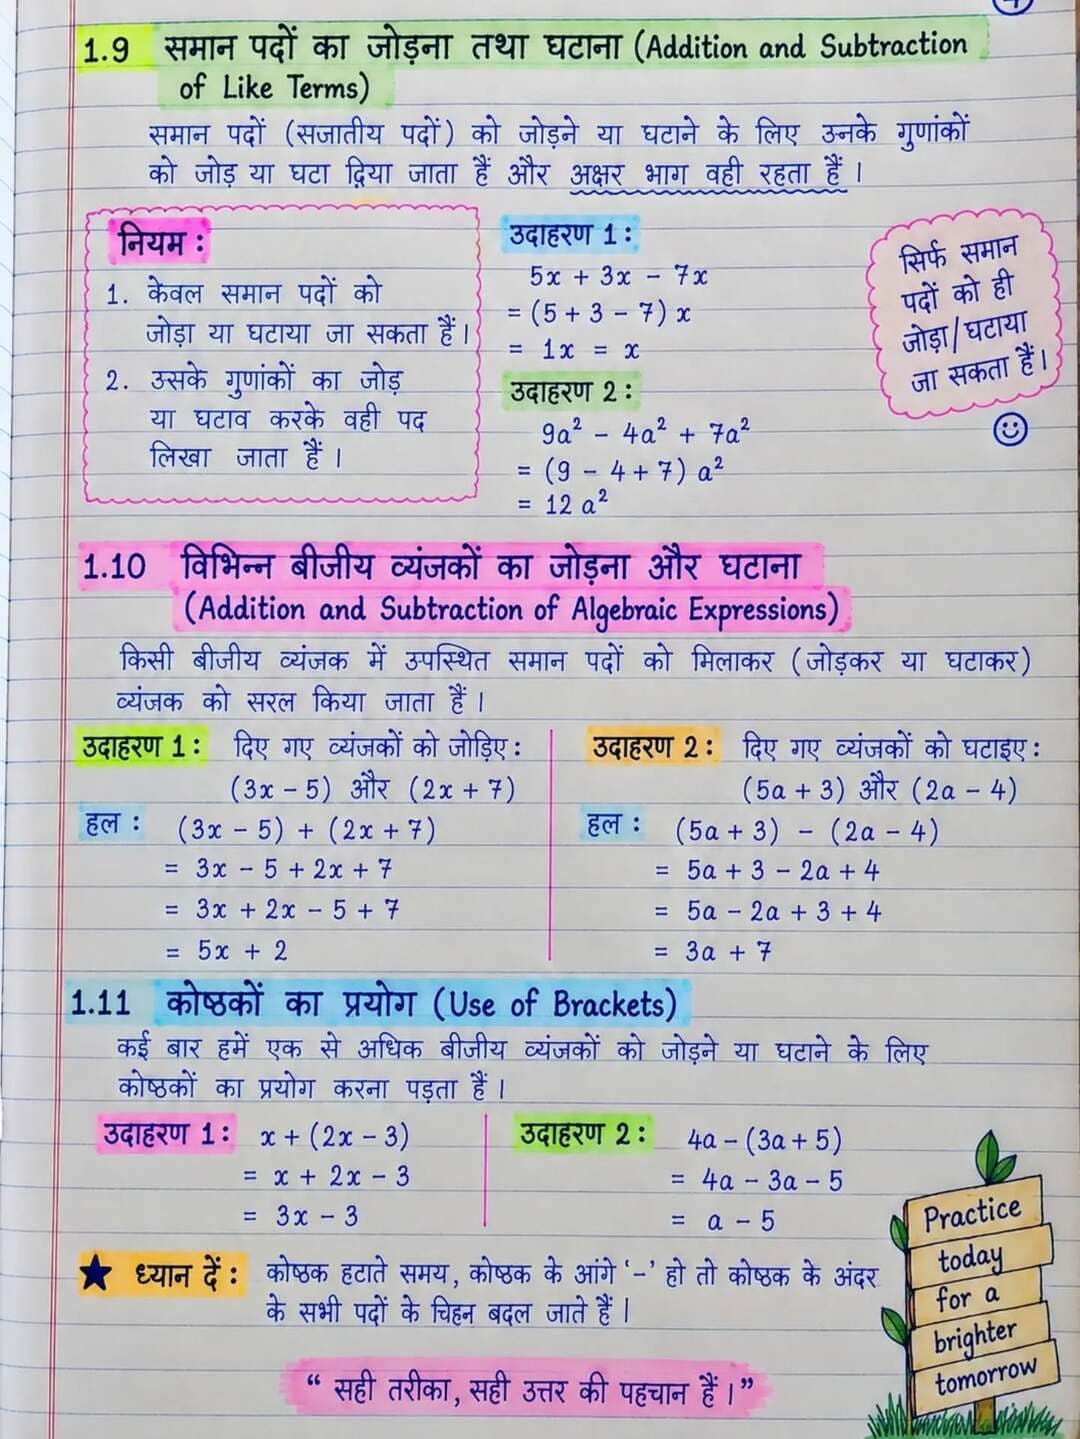 4
1.9 समान पदों का जोड़ना तथा घटाना (Addition and Subtraction
of Like Terms)
समान पदों (सजातीय पदों) को जोड़ने या घटाने के लिए उनके गुणांकों
को जोड़ या घटा दिया जाता हैं और अक्षर भाग वही रहता हैं ।
नियम :
1. केवल समान पदों को
जोड़ा या घटाया जा सकता हैं ।
2. उसके गुणांकों का जोड़
या घटाव करके वही पद
लिखा जाता हैं ।
उदाहरण 1 :
5x + 3x - 7x
= (5 + 3 - 7) x
= 1x = x
उदाहरण 2 :
9a² - 4a² + 7a²
= (9 - 4 + 7) a²
= 12 a²
सिर्फ समान
पदों को ही
जोड़ा/घटाया
जा सकता हैं ।
1.10 विभिन्न बीजीय व्यंजकों का जोड़ना और घटाना
(Addition and Subtraction of Algebraic Expressions)
किसी बीजीय व्यंजक में उपस्थित समान पदों को मिलाकर (जोड़कर या घटाकर)
व्यंजक को सरल किया जाता हैं ।
उदाहरण 1 : दिए गए व्यंजकों को जोड़िए :
(3x - 5) और (2x + 7)
हल : (3x - 5) + (2x + 7)
= 3x - 5 + 2x + 7
= 3x + 2x - 5 + 7
= 5x + 2
उदाहरण 2 : दिए गए व्यंजकों को घटाइए :
(5a + 3) और (2a - 4)
हल : (5a + 3) - (2a - 4)
= 5a + 3 - 2a + 4
= 5a - 2a + 3 + 4
= 3a + 7
1.11 कोष्ठकों का प्रयोग (Use of Brackets)
कई बार हमें एक से अधिक बीजीय व्यंजकों को जोड़ने या घटाने के लिए
कोष्ठकों का प्रयोग करना पड़ता हैं ।
उदाहरण 1 : x + (2x - 3)
= x + 2x - 3
= 3x - 3
उदाहरण 2 : 4a - (3a + 5)
= 4a - 3a - 5
= a - 5
★ ध्यान दें : कोष्ठक हटाते समय, कोष्ठक के आंगे '-' हो तो कोष्ठक के अंदर
के सभी पदों के चिहन बदल जाते हैं ।
Practice
today
for a
brighter
tomorrow
“ सही तरीका, सही उत्तर की पहचान हैं ।”